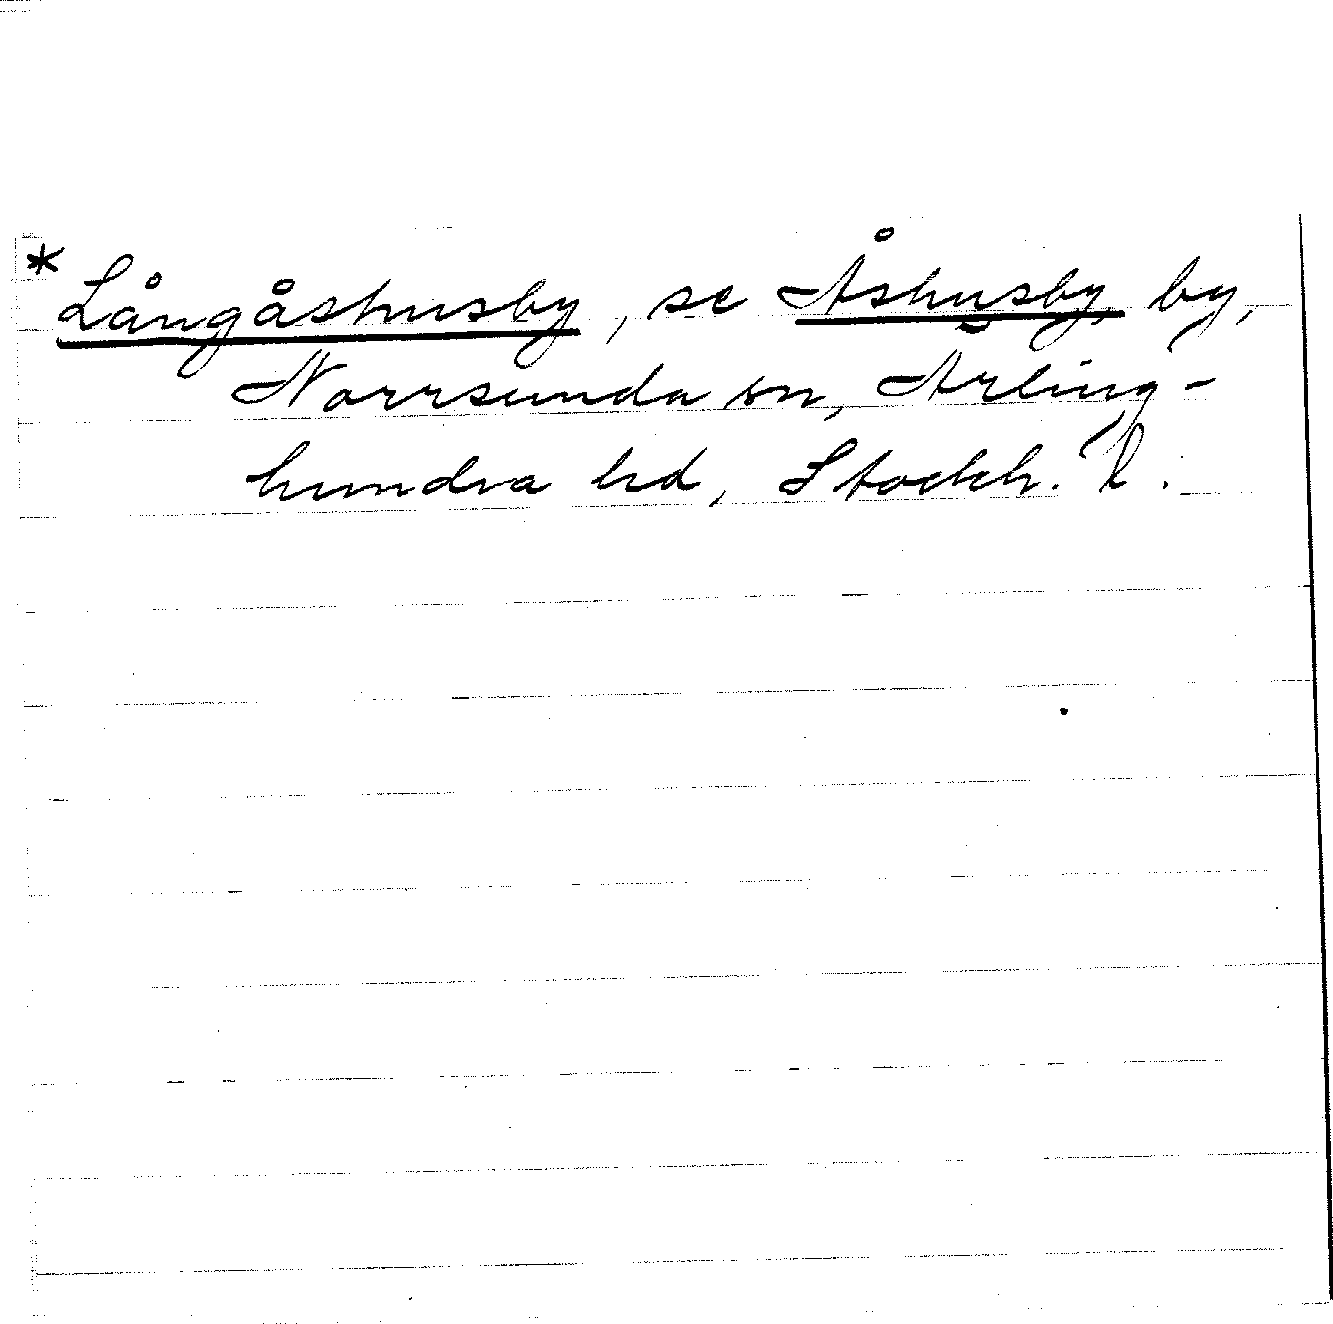 * Långåshusby, se Åshusby, by,
Norrsunda sn, Ärling-
hundra hd, Stockh. l.